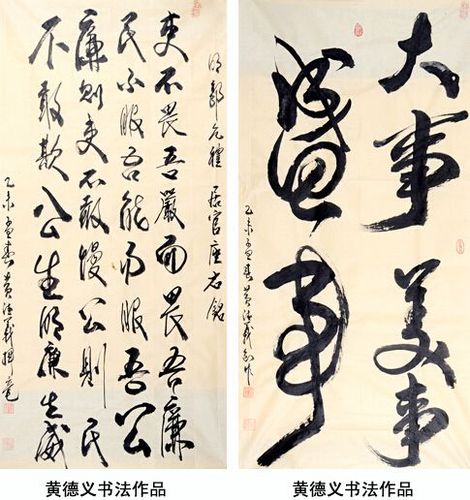 明郭允禮 居官座右銘
吏不畏吾嚴而畏吾廉
民不服吾能而服吾公
廉則吏不敢慢公則民
不敢欺公生明廉生威
乙未孟春黄德義揮毫
大事美事
盛事
乙未孟春黄德義
黄德义书法作品
黄德义书法作品